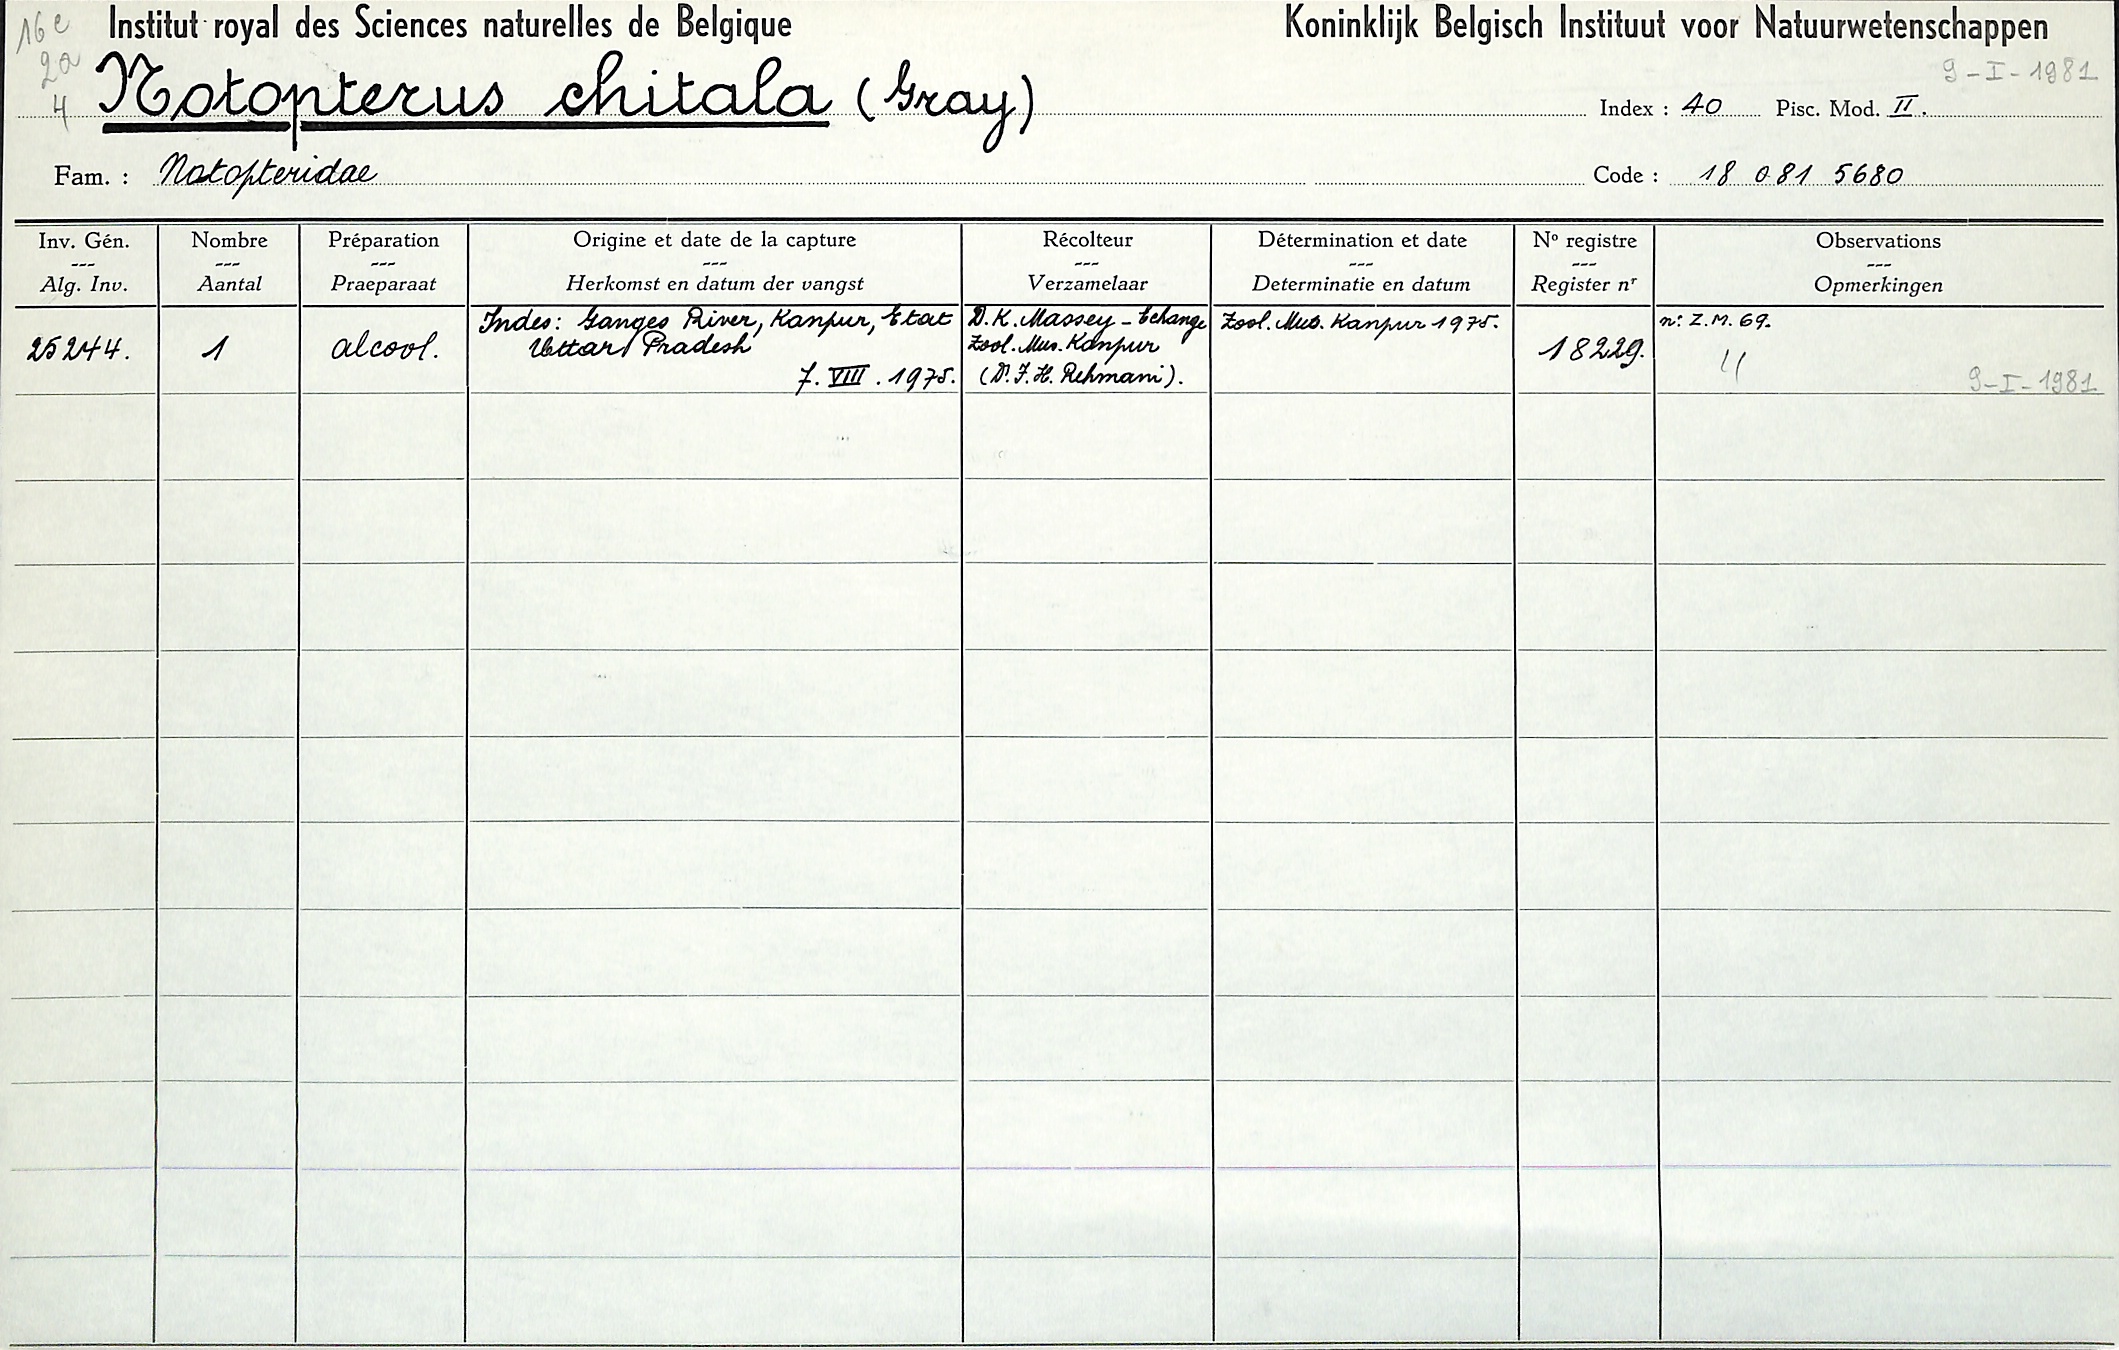 16e
2a
4
Institut royal des Sciences naturelles de Belgique
Koninklijk Belgisch Instituut voor Natuurwetenschappen
9-I-1981
Notopterus chitala (Gray)
Index : 40 Pisc. Mod. II.
Fam. : Notopteridae
Code : 18 081 5680
Inv. Gén.
---
Alg. Inv.
Nombre
---
Aantal
Préparation
---
Praeparaat
Origine et date de la capture
---
Herkomst en datum der vangst
Récolteur
---
Verzamelaar
Détermination et date
---
Determinatie en datum
Nº registre
---
Register nr
Observations
---
Opmerkingen
25244.
1
alcool.
Indes: Ganges River, Kanpur, Etat
Uttar Pradesh
7. VIII. 1975.
D.K. Massey - Echange
Zool. Mus. Kanpur
(Dr. F. H. Rehmani).
Zool. Mus. Kanpur 1975.
18229.
n: Z.M. 69.
9-I-1981